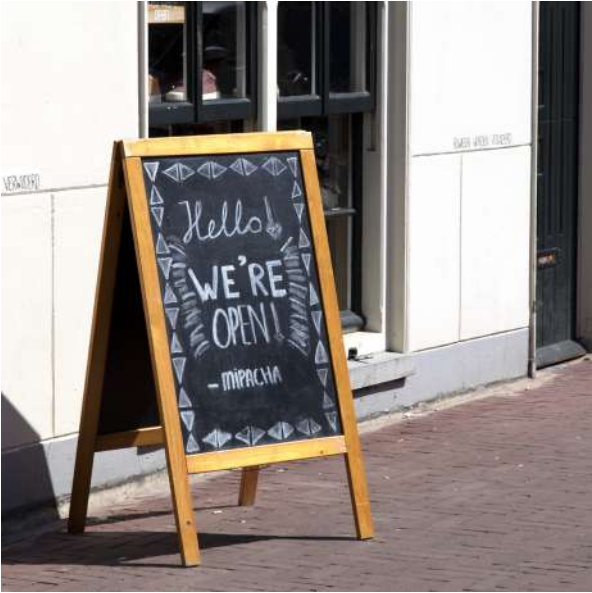 Hello!
WE'RE
OPEN!
- MIPACHA